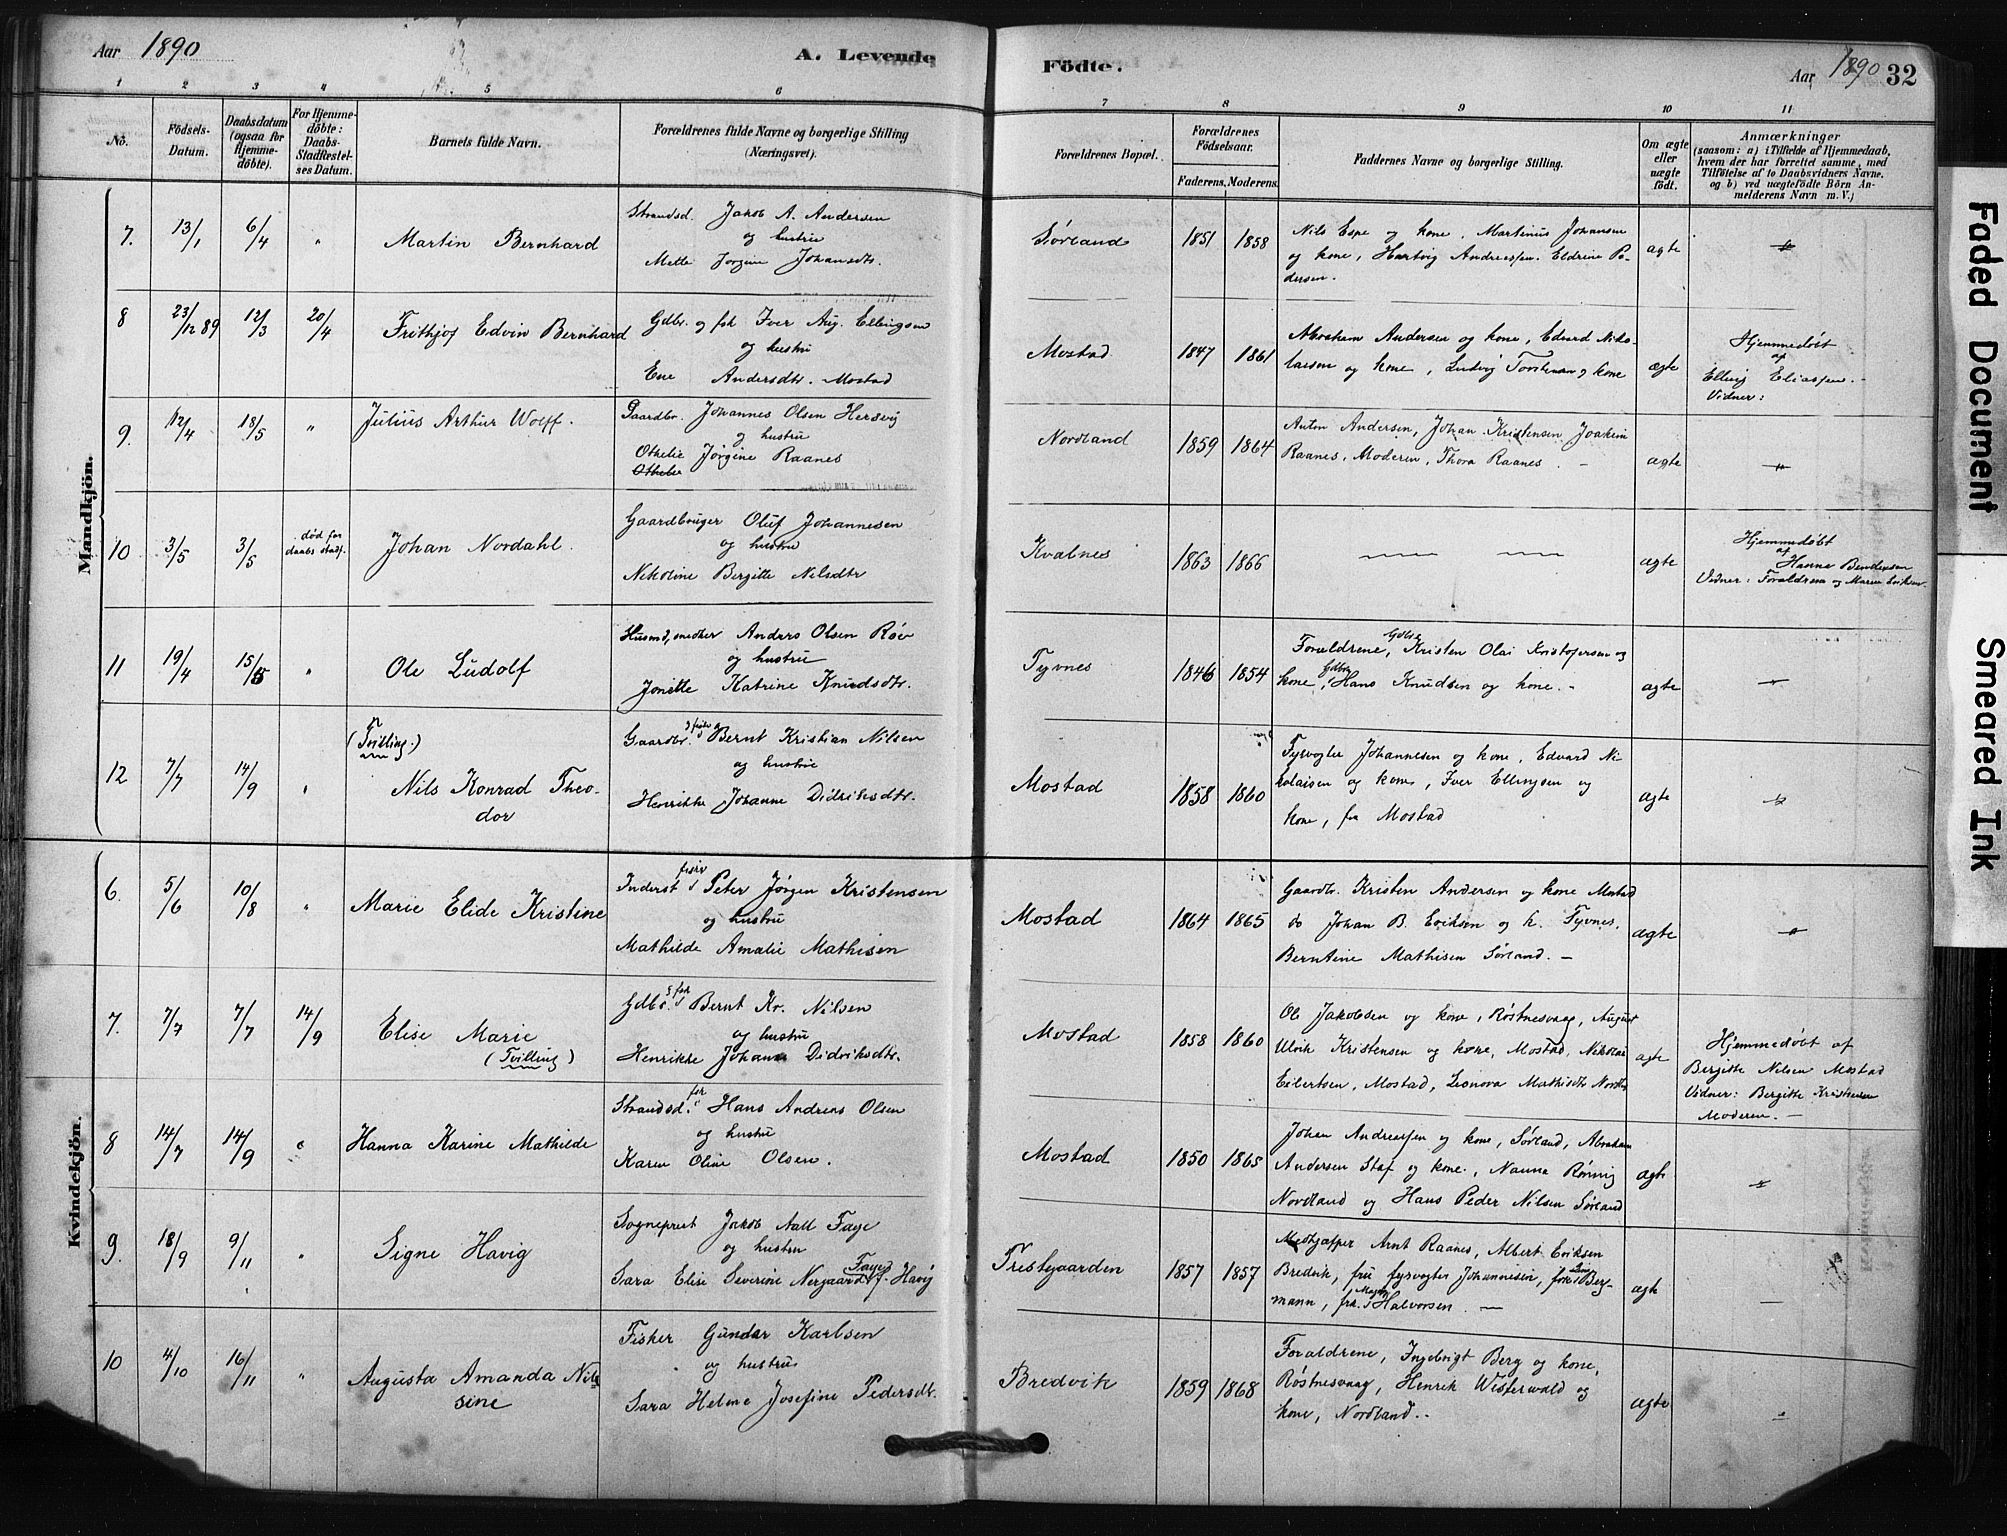 Aar 1890
A. Levende Födte.
Aar 1890 32
1 2 3 4 5 6 7 8 9 10 11
No.
Födsels-
Datum.
Daabsdatum
(ogsaa for
Hjemme-
döbte).
For Hjemme-
döbte:
Daabs-
Stadfæstel-
ses Datum.
Barnets fulde Navn.
Forældrenes fulde Navne og borgerlige Stilling
(Næringsvei).
Forældrenes Bopæl.
Forældrenes
Födselsaar.
Faderens. Moderens.
Faddernes Navne og borgerlige Stilling.
Om ægte
eller
uægte
födt.
Anmærkninger
(saasom: a) i Tilfælde af Hjemmedaab,
hvem der har forrettet samme, med
Tilföielse af to Daabsvidners Navne.
og b) ved uægtefödte Börn An-
melderens Navn m. V.)
Mandkjön.
7. 13/1 6/4 " Martin Bernhard
Strandsd. Jakob A. Andersen
og hustru
Mette Jorgine Johansdtr.
Sørland 1851 1858
Nils Espe og kone. Martinus Johansen
og kone, Hartvig Andreassen. Eldrine Pe-
dersen.
ægte
8 23/12 89 12/3 20/4 Frithjof Edvin Bernhard
Gdbr. og fsk Iver Aug. Ellingsen
og hustru
Ene Andersdtr. Mostad
Mostad 1847 1861
Abraham Andersen og kone, Edvard Niko-
laisen og kone, Ludvig Torstensen og kone
ægte
Hjemmedøbt
af
Elling Eliassen.
Vidner:
9. 12/4 18/5 " Julius Arthur Wolff.
Gaardbr. Johannes Olsen Hersvig
og hustru
Othelie Jørgine Raanes
Othelie
Nordland 1859 1864
Anton Andersen, Johan Kristensen Joakim
Raanes, Moderen, Thora Raanes. -
ægte
10 3/5 3/5 død før
daabs stadf. Johan Nordahl.
Gaardbruger Oluf Johannesen
og hustru
Nikoline Bergitte Nilsdtr
Kvalnes 1863 1866
ægte
Hjemmedøbt
af
Hanne Bendixsen
Vidner: Forældrene og Maren Eriksen
11 19/4 15/6 " Ole Ludolf
Husmd, snedker Anders Olsen Røv
og hustru
Jonette Katrine Knudsdtr.
Tyvnes 1846 1854
Forældrene, Gdbr Kristen Olai Kristofersen og
kone, Gdbr Hans Knudsen og kone. -
ægte
12 7/7 14/9 " (Tvilling.)
Nils Konrad Theo-
dor
Gaardbr. og fisker Bernt Kristian Nilsen
og hustru
Henrikke Johanne Didriksdtr.
Mostad 1858 1860
Fyrvogter Johannesen og kone, Edvard Ni-
kolaisen og kone, Iver Ellingsen og
kone, fra Mostad
ægte
Kvindekjön.
6. 5/6 10/8 " Marie Elide Kristine
Inderst fisker Peter Jørgen Kristensen
og hustru
Mathilde Amalie Mathisen
Mostad 1864 1865
Gaardbr. Kristen Andersen og kone Mostad
do Johan B. Eriksen og k. Tyvnes.
Berntine Mathisen Sørland. -
ægte
7. 7/7 7/7 14/9 Elise Marie
(Tvilling)
Gdbr. og fsk Bernt Kr. Nilsen
og hustru
Henrikke Johanne Didriksdtr.
Mostad 1858 1860
Ole Jakobsen og kone, Røstnesvaag, August
Ulrik Kristensen og kone, Mostad, Nikolai
Eilertsen, Mostad, Leonora Mathisdtr Nordld
ægte
Hjemmedøbt af
Bergitte Nilsen Mostad
Vidner: Bergitte Kristensen
Moderen. -
8 14/7 14/9 " Hanna Karine Mathilde
Strandsd. fsk Hans Andreas Olsen
og hustru
Karen Oline Olsen.
Mostad 1850 1865
Johan Andreassen og kone, Sørland, Abraham
Andersen Staf og kone, Nanna Rønnig
Nordland og Hans Peder Nilsen Sørland
ægte
9. 18/9 9/11 " Signe Havig
Sogneprest Jakob Aall Faye
og hustru
Sara Elise Severine Nergaard Faye f. Havig
Prestegaarden 1857 1857
Arnt Raanes, Albert Eriksen
Bredvik, fru fyrvogter Johannesen, frk. Berg-
mann, frk. Halvorsen. -
ægte
10 4/10 16/11 " Augusta Amanda Nil-
sine
Fisker Gundar Karlsen
og hustru
Sara Helene Josefine Pedersdtr.
Bredvik 1859 1868
Forældrene, Ingebrigt Berg og kone,
Røstnesvaag, Henrik Westerwald og
kone, Nordland. -
ægte
Faded Document
Smeared Ink